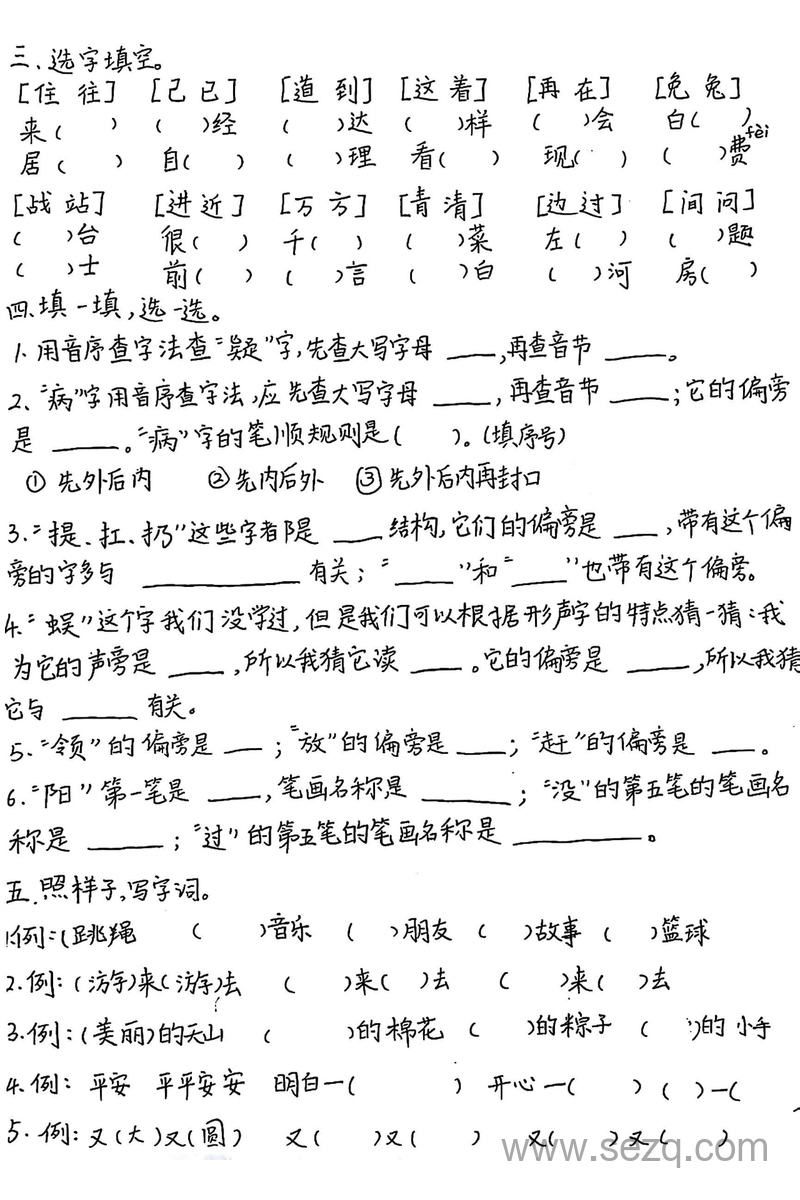 三、选字填空。
[住 往] [己 已] [道 到] [这 着] [再 在] [免 兔]
来( ) ( )经 ( )达 ( )样 ( )会 白( )
居( ) 自( ) ( )理 看( ) 现( ) ( )费fèi
[战 站] [进 近] [万 方] [青 清] [边 过] [间 问]
( )台 很( ) 千( ) ( )菜 左( ) ( )题
( )士 前( ) ( )言 ( )白 ( )河 房( )
四、填一填,选一选。
1、用音序查字法查“疑”字,先查大写字母 ____,再查音节 ____。
2、“病”字用音序查字法,应先查大写字母 ____,再查音节 ____;它的偏旁
是 ____。“病”字的笔顺规则是( )。(填序号)
① 先外后内 ② 先内后外 ③ 先外后内再封口
3.“提、扛、扔”这些字都是 ____ 结构,它们的偏旁是 ____,带有这个偏
旁的字多与 __________ 有关;“____”和“____”也带有这个偏旁。
4.“蜈”这个字我们没学过,但是我们可以根据形声字的特点猜一猜:我
为它的声旁是 ____,所以我猜它读 ____。它的偏旁是 ____,所以我猜
它与 ____ 有关。
5.“领”的偏旁是 ___;“放”的偏旁是 ___;“赶”的偏旁是 ___。
6.“阳”第一笔是 ____,笔画名称是 ______;“没”的第五笔的笔画名
称是 _____;“过”的第五笔的笔画名称是 ________。
五.照样子,写字词。
1.例:(跳绳 ( )音乐 ( )朋友 ( )故事 ( )篮球
2.例:(游)来(游)去 ( )来( )去 ( )来( )去
3.例:(美丽)的天山 ( )的棉花 ( )的粽子 ( )的小手
4.例: 平安 平平安安 明白一( ) 开心一( ) ( )一(
5.例:又(大)又(圆) 又( )又( ) 又( )又( )
www.sezq.com